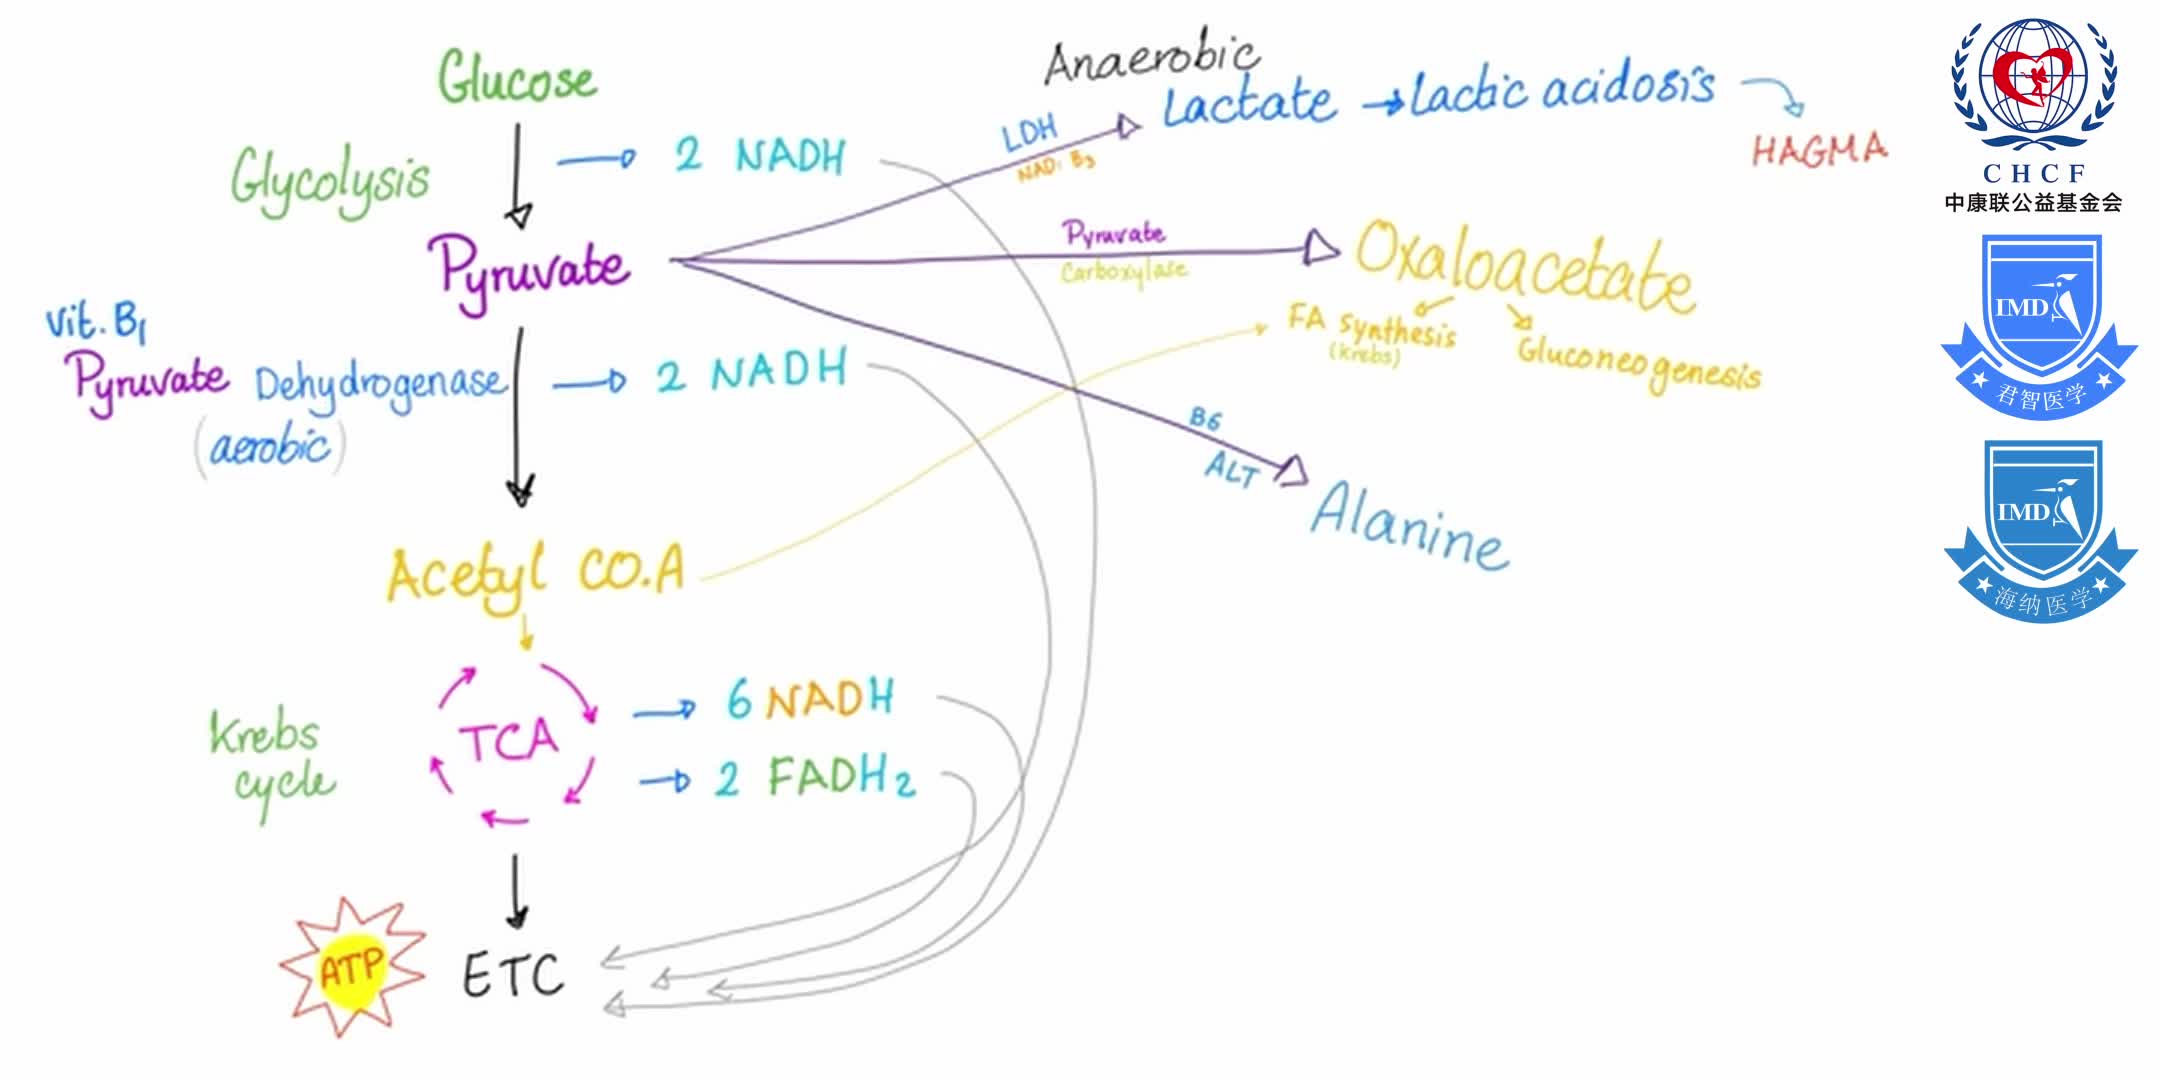 Glucose
Glycolysis
2 NADH
Pyruvate
Anaerobic
LDH
NAD: B3
Lactate → Lactic acidosis
HAGMA
Pyruvate
Carboxylase
Oxaloacetate
FA synthesis
(krebs)
Gluconeogenesis
B6
ALT
Alanine
vit. B1
Pyruvate Dehydrogenase
(aerobic)
2 NADH
Acetyl CO.A
Krebs
cycle
TCA
6 NADH
2 FADH2
ATP
ETC
CHCF
中康联公益基金会
IMD
君智医学
IMD
海纳医学